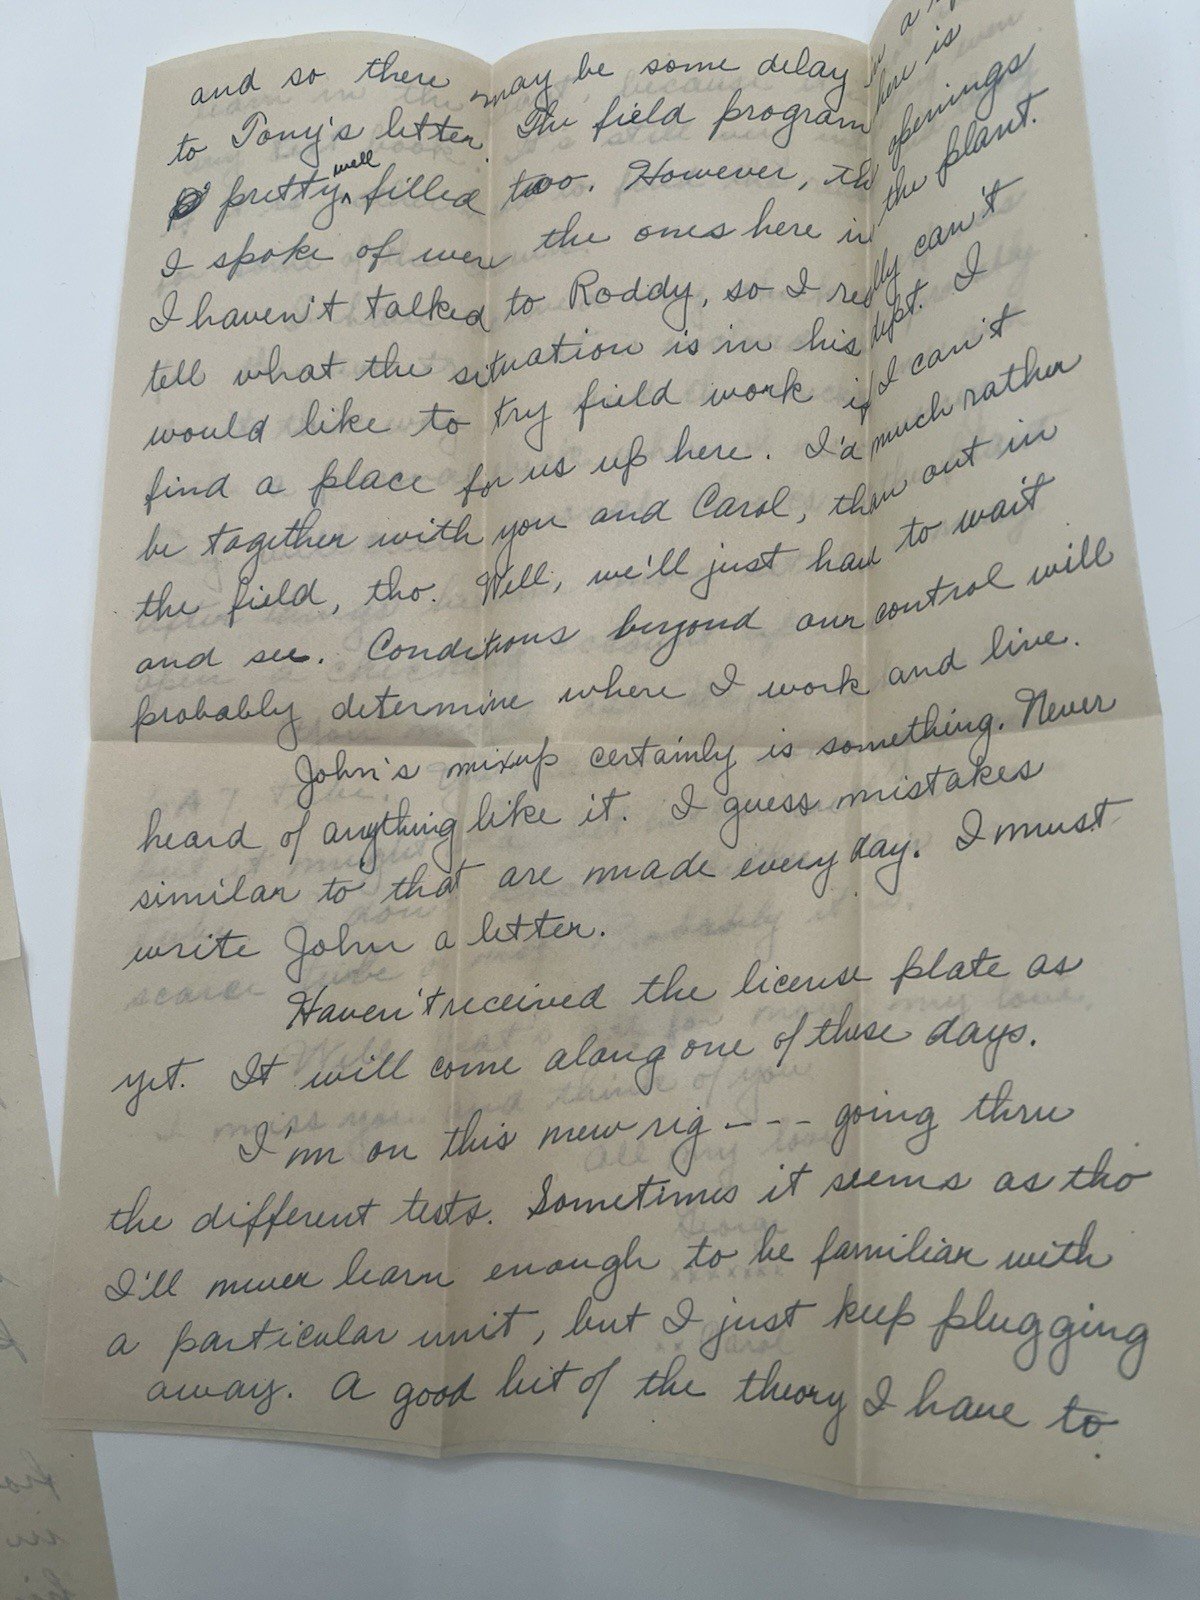 and so there may be some delay in a reply
to Tony's letter. The field program here is
pretty well filled too. However, the openings
I spoke of were the ones here in the plant.
I haven't talked to Roddy, so I really can't
tell what the situation is in his dept. I
would like to try field work if I can't
find a place for us up here. I'd much rather
be together with you and Carol, than out in
the field, tho. Well, we'll just have to wait
and see. Conditions beyond our control will
probably determine where I work and live.
John's mixup certainly is something. Never
heard of anything like it. I guess mistakes
similar to that are made every day. I must
write John a letter.
Haven't received the license plate as
yet. It will come along one of these days.
I'm on this new rig---- going thru
the different tests. Sometimes it seems as tho
I'll never learn enough to be familiar with
a particular unit, but I just keep plugging
away. A good bit of the theory I have to